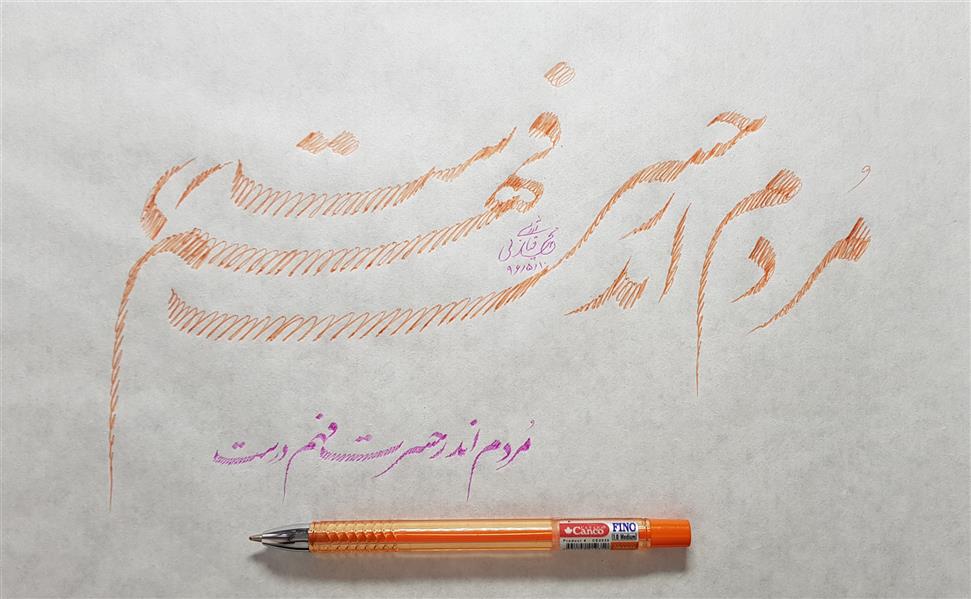 مُردم اندر حسرت فهم
۹۶/۵/۱۰
مُردم اندر حسرت فهم درست
Canco FINO
1.0 Medium
Product #